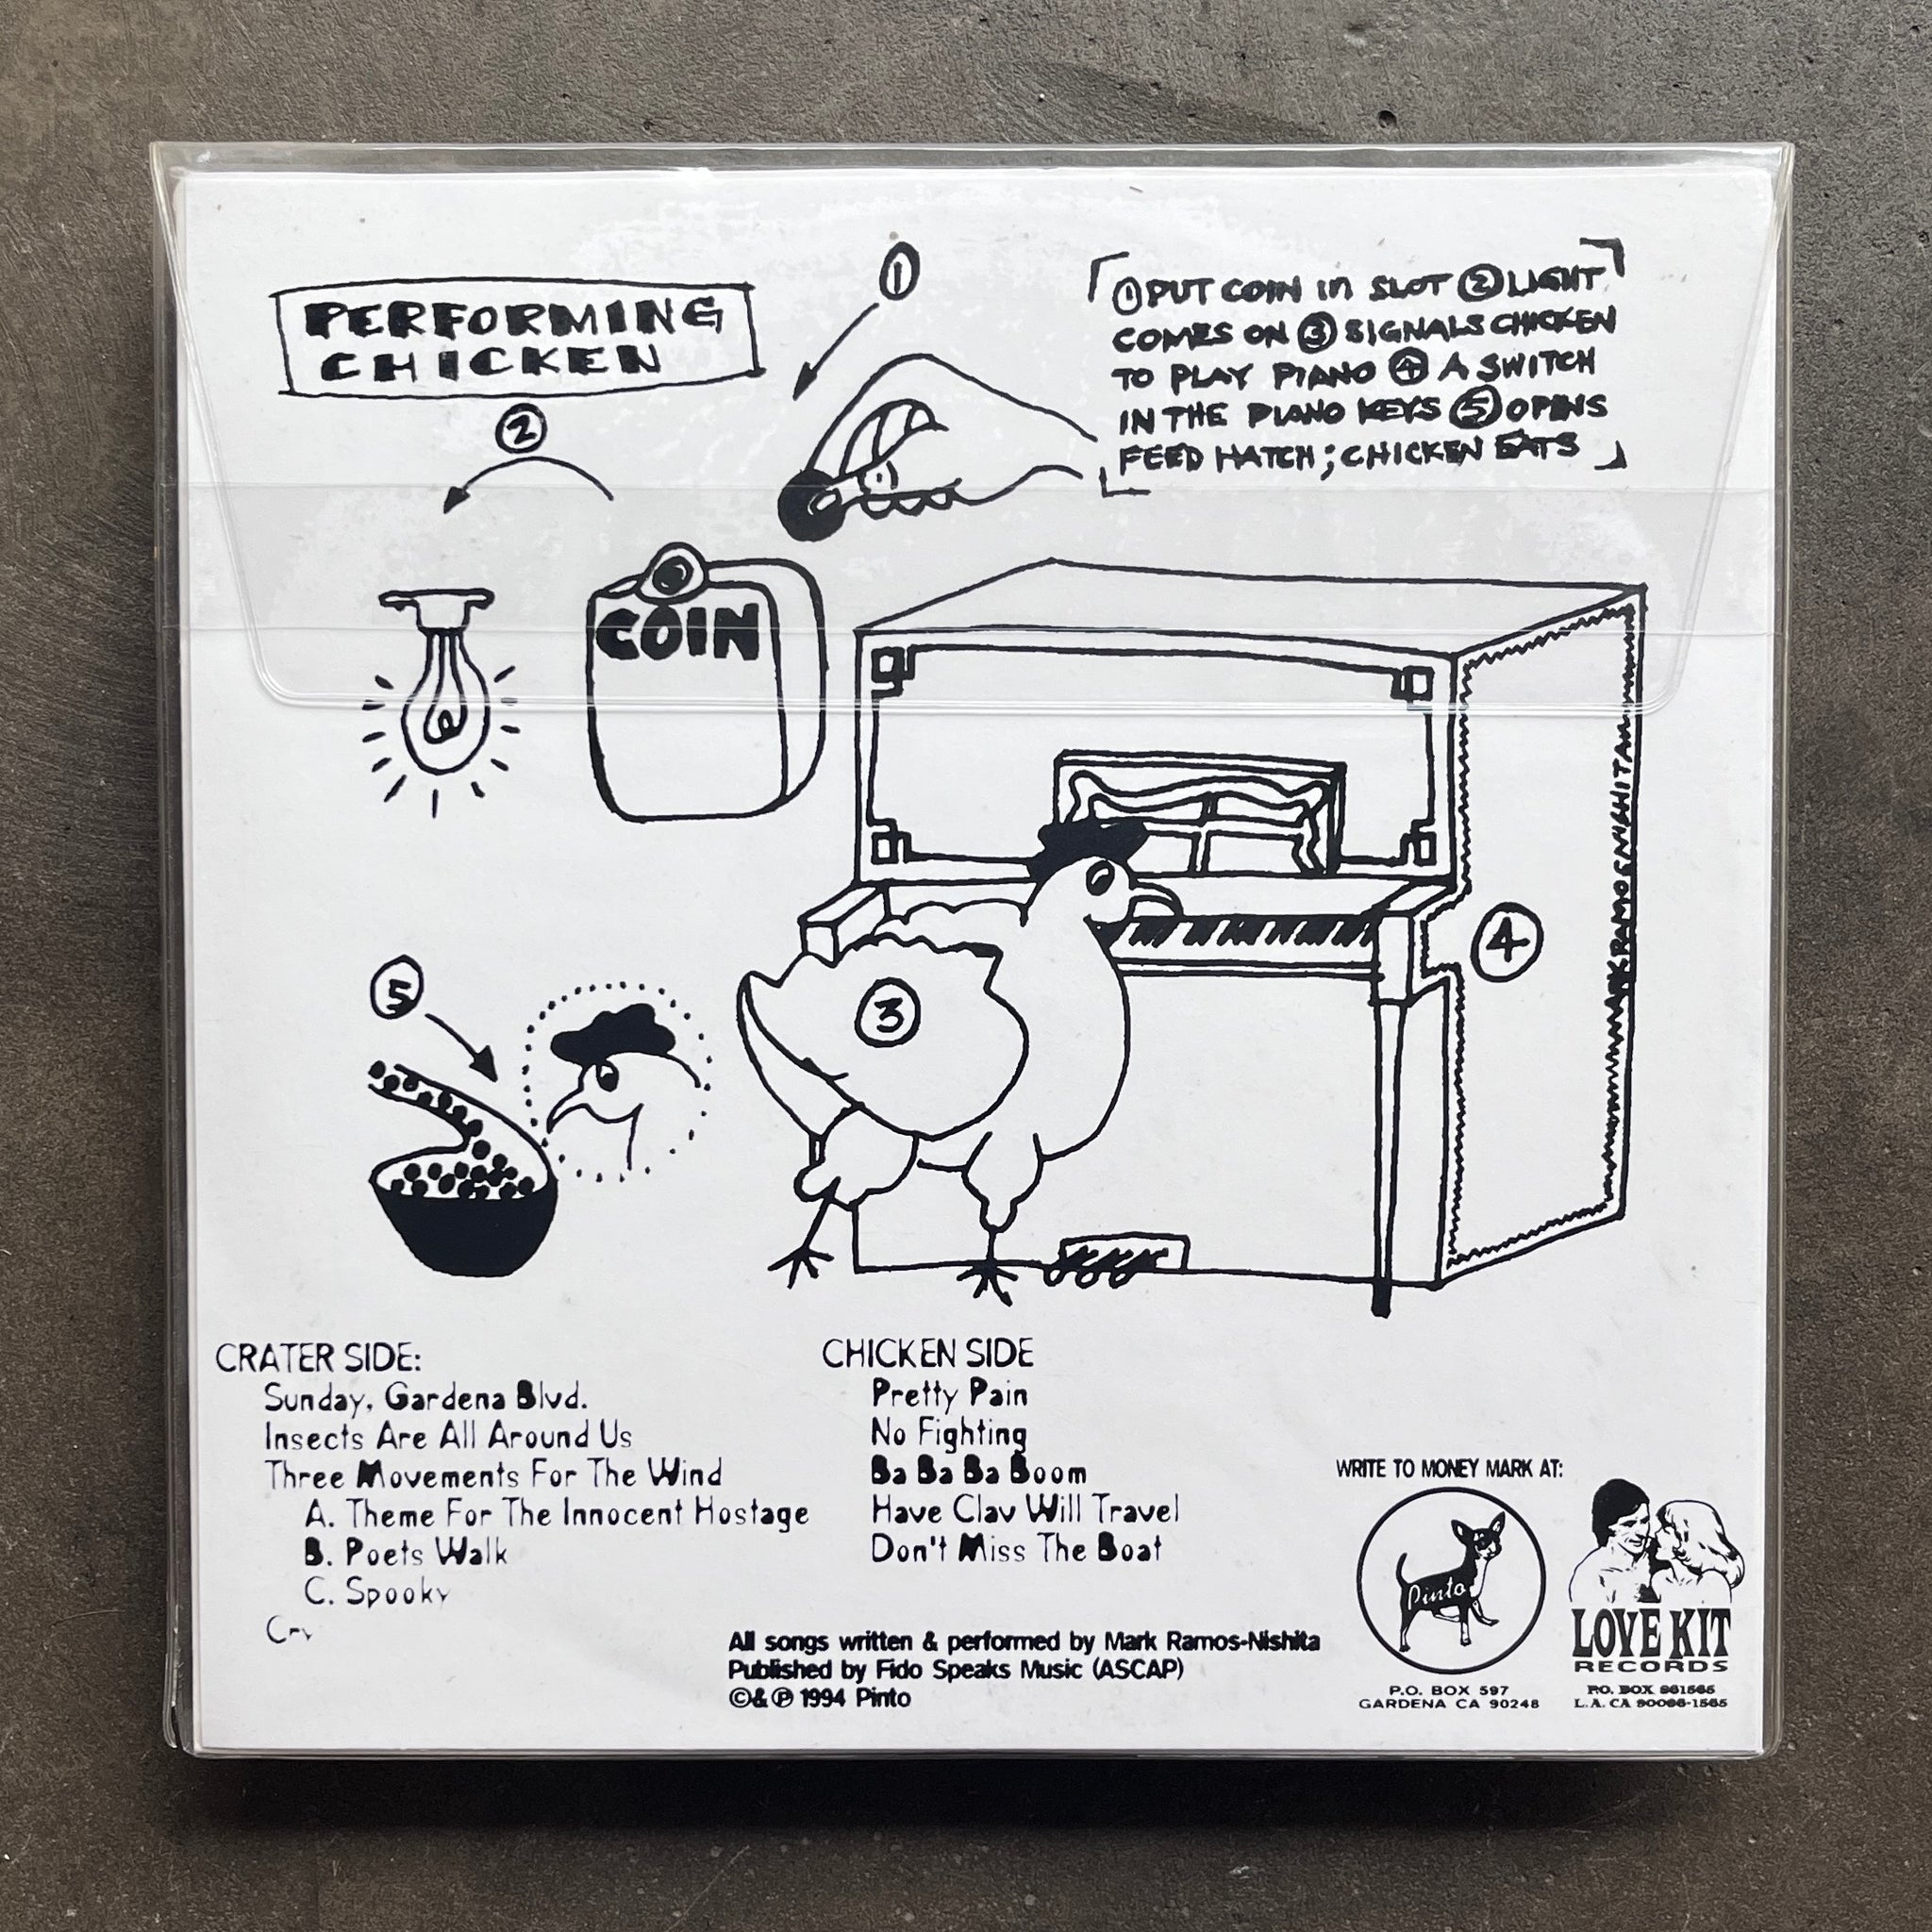 PERFORMING
CHICKEN
1
① PUT COIN in SLOT ② LIGHT
COMES ON ③ SIGNALS CHICKEN
TO PLAY PIANO ④ A SWITCH
IN THE PIANO KEYS ⑤ OPENS
FEED HATCH; CHICKEN EATS
2
COIN
3
4
5
CRATER SIDE:
Sunday, Gardena Blvd.
Insects Are All Around Us
Three Movements For The Wind
A. Theme For The Innocent Hostage
B. Poets Walk
C. Spooky
Cry
CHICKEN SIDE
Pretty Pain
No Fighting
Ba Ba Ba Boom
Have Clav Will Travel
Don't Miss The Boat
All songs written & performed by Mark Ramos-Nishita
Published by Fido Speaks Music (ASCAP)
©& ℗ 1994 Pinto
WRITE TO MONEY MARK AT:
Pinto
P.O. BOX 597
GARDENA CA 90248
LOVE KIT
RECORDS
P.O. BOX 861565
L.A. CA 90086-1565